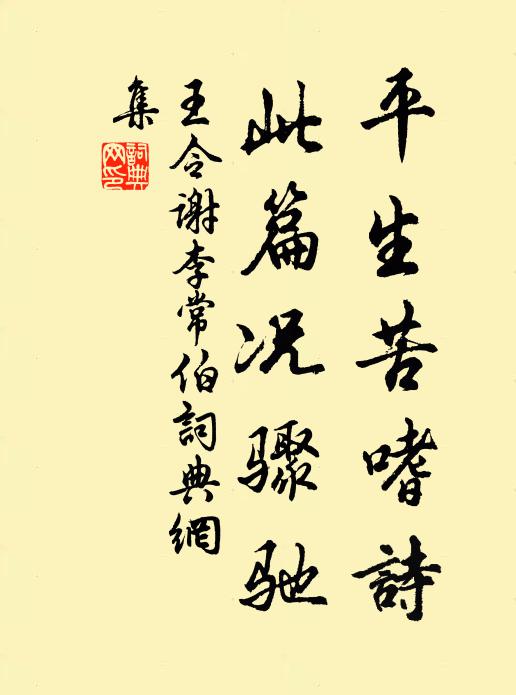 平生苦嗜詩
此篇况驟馳
王令謝李常伯詞典網
集
詞典
网印